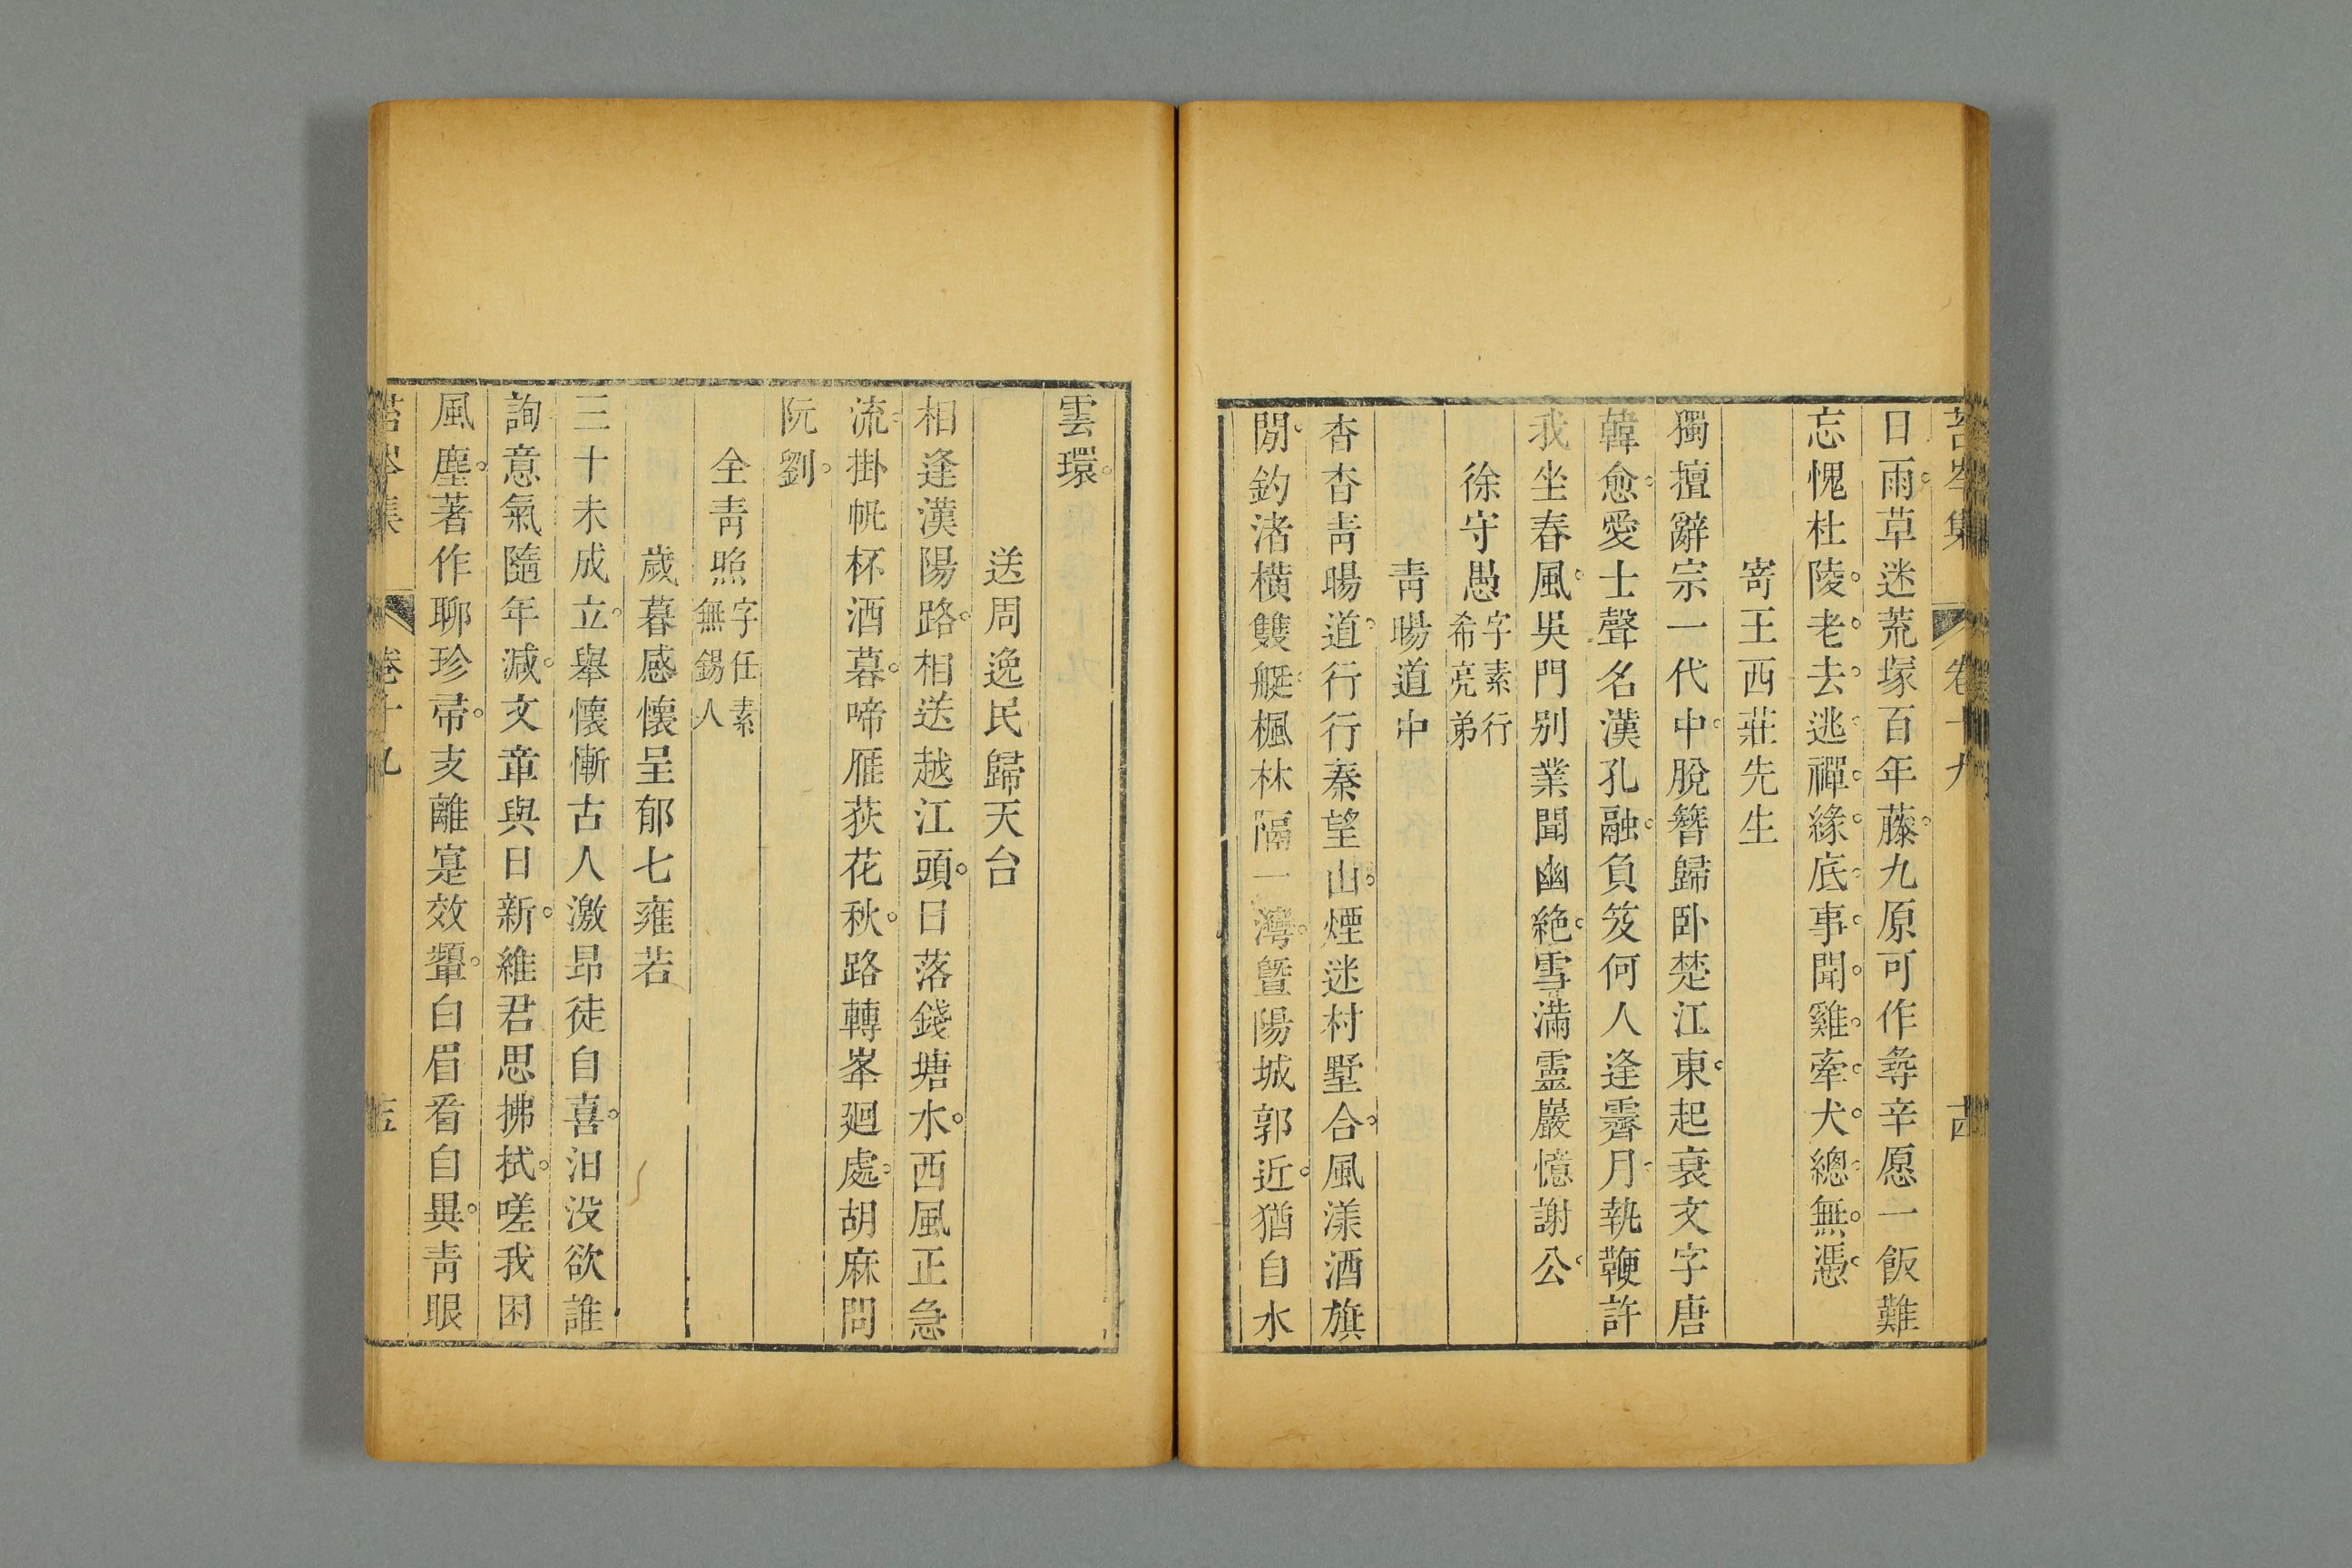 苔岑集 卷十九 十四
日雨。草迷荒塚百年藤。九原可作尋辛愿一飯難
忘愧杜陵。老。去。逃。禪。緣。底。事。聞。雞。牽。犬。總。無。憑。
寄王西莊先生
獨擅辭宗一代中。脫簪歸卧楚江東。起衰文字唐
韓愈。愛士聲名漢孔融。負笈何人逢霽月。執鞭許
我坐春風。吳門别業聞幽絶。雪滿靈巖憶謝公。
徐守愚字素行希亮弟
靑暘道中
杳杳靑暘道。行行秦望山。煙迷村墅合。風漾酒旗
閒。釣渚橫雙艇。楓林隔一灣。曁陽城郭近。猶自水
雲環。
送周逸民歸天台
相逢漢陽路。相送越江頭。日落錢塘水。西風正急
流。掛帆杯酒暮。啼雁荻花秋。路轉峯廻處。胡麻問
阮劉。
全靑照字任素無錫人
歲暮感懷呈郁七雍若
三十未成立。舉懷慚古人激昻徒自喜。汨没欲誰
詢意氣隨年减。文章與日新。維君思拂拭。嗟我困
風塵。著作聊珍帚。支離寔效顰。白眉看自異。靑眼
苔岑集 卷十九 十五